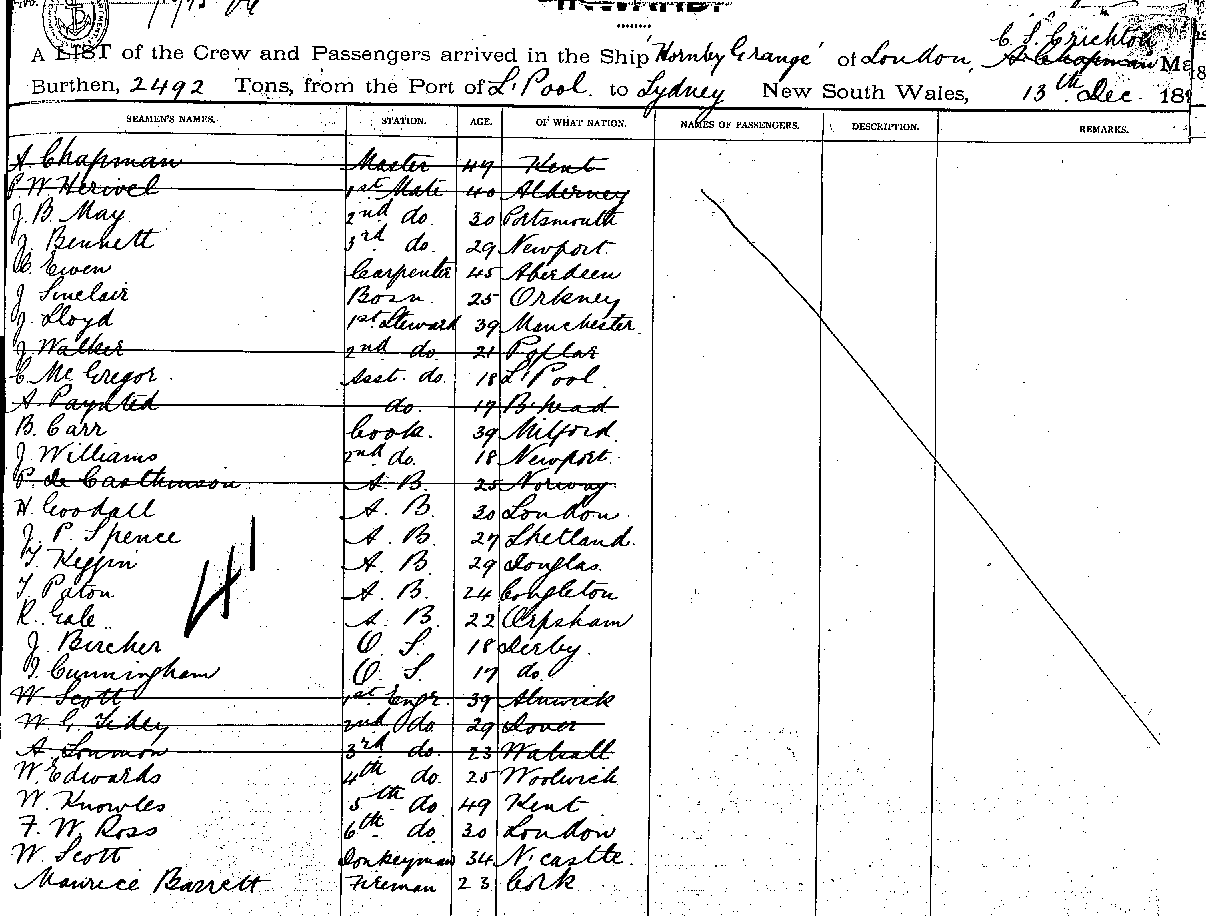 INWARDS
C. S. Crichton
A LIST of the Crew and Passengers arrived in the Ship 'Hornby Grange' of London, A Chapman Ma
Burthen, 2492 Tons, from the Port of L'Pool to Sydney New South Wales, 13th Dec. 189
SEAMEN'S NAMES. STATION. AGE. OF WHAT NATION. NAMES OF PASSENGERS. DESCRIPTION. REMARKS.
A Chapman Master 47 Kent
P. W. Herivel 1st Mate 40 Alderney
J. B. May 2nd do. 30 Portsmouth
J. Bennett 3rd do. 29 Newport.
C. Ewen Carpenter 45 Aberdeen
J Sinclair Bosn. 25 Orkney
J. Lloyd 1st. Steward 39 Manchester
J Walker 2nd do 21 Poplar
C McGregor. Asst. do. 18 L'Pool.
A. do. 17 B'head
B. Carr Cook. 39 Milford.
J. Williams 2nd do. 18 Newport.
P. de A. B. 25 Norway
H. Goodall A. B. 30 London.
J. P. Spence A. B. 27 Shetland.
T. Keggin A. B. 29 Douglas.
T. Paton A. B. 24 Congleton
R. Gale A. B. 22 Orpsham
J. Bircher O. S. 18 Derby.
J. Cunningham O. S. 17 do.
W Scott 1st Engr. 39 Alnwick
W G 2nd do 29 Dover
A 3rd do. 23 Walsall
W. Edwards 4th do. 25 Woolwich
W. Knowles 5th do 49 Kent
F. W. Ross 6th do 30 London
W. Scott Donkeyman 34 N'castle.
Maurice Barrett Fireman 23 Cork